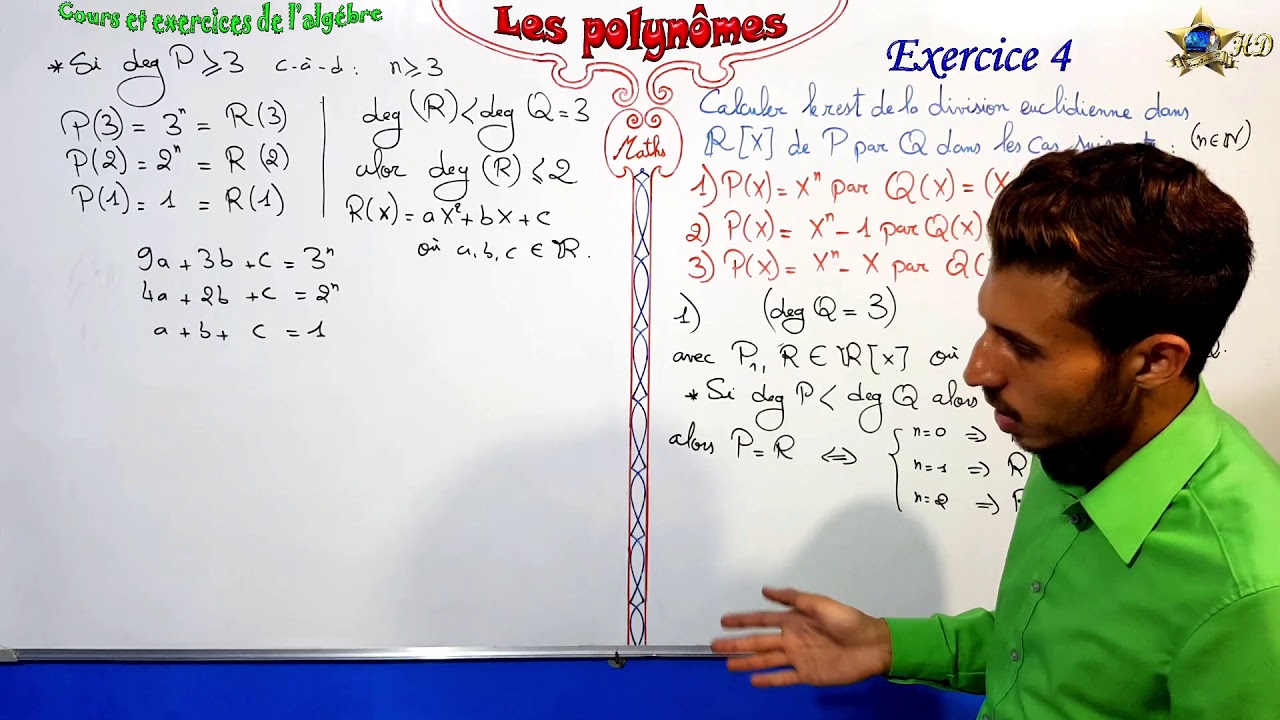 Cours et exercices de l'algébre
Les polynômes
Exercice 4
HD
Maths
* Si deg P ⩾ 3 c-à-d : n ⩾ 3
P(3) = 3ⁿ = R(3)
P(2) = 2ⁿ = R(2)
P(1) = 1 = R(1)
deg (R) < deg Q = 3
alor deg (R) ⩽ 2
R(X) = aX² + bX + c
où a, b, c ∈ ℝ.
9a + 3b + c = 3ⁿ
4a + 2b + c = 2ⁿ
a + b + c = 1
Calculer le rest de la division euclidienne dans
ℝ[X] de P par Q dans les cas : (n ∈ ℕ)
1) P(X) = Xⁿ par Q(X) = (X
2) P(X) = Xⁿ - 1 par Q(X)
3) P(X) = Xⁿ - X par Q(
1) (deg Q = 3)
avec P₁, R ∈ ℝ[X] où
* Si deg P < deg Q alors
alors P = R ⟺ { n=0 ⇒
n=1 ⇒ R
n=2 ⇒